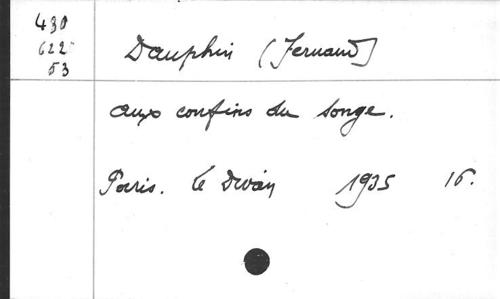 430
622
53
Dauphin (Fernand)
aux confins du songe.
Paris. Le Divan 1935 16.